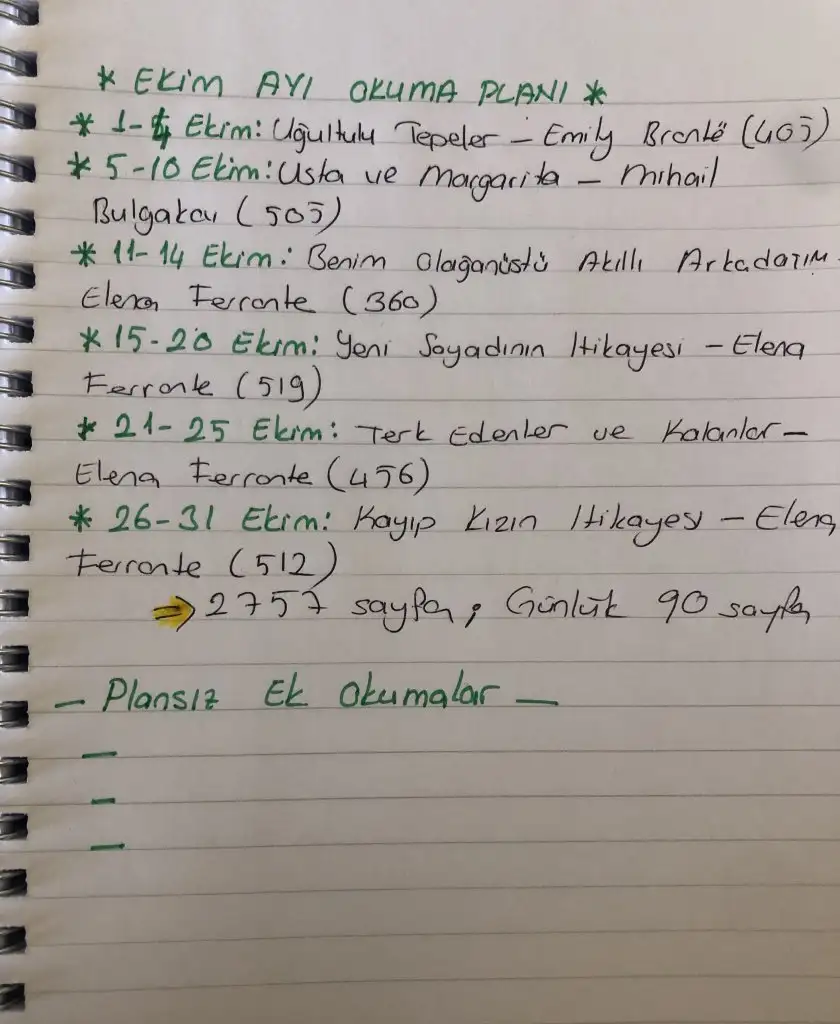 * EKİM AYI OKUMA PLANI *
* 1-4 Ekim: Uğultulu Tepeler - Emily Brontë (405)
* 5-10 Ekim: Usta ve Margarita - Mihail
Bulgakov (505)
* 11-14 Ekim: Benim Olağanüstü Akıllı Arkadaşım -
Elena Ferrante (360)
* 15-20 Ekim: Yeni Soyadının Hikayesi - Elena
Ferrante (519)
* 21-25 Ekim: Terk Edenler ve Kalanlar -
Elena Ferrante (456)
* 26-31 Ekim: Kayıp Kızın Hikayesi - Elena
Ferrante (512)
⇒ 2757 sayfa, Günlük 90 sayfa
- Plansız Ek Okumalar -
-
-
-